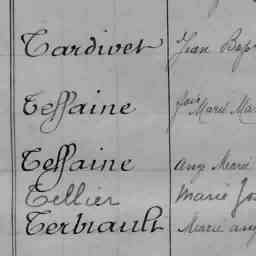 Tardivet Jean Bap
Teffaine Marie Ma
Teffaine Ang Marie
Tellier Marie Jos
Terbiault Marie ang